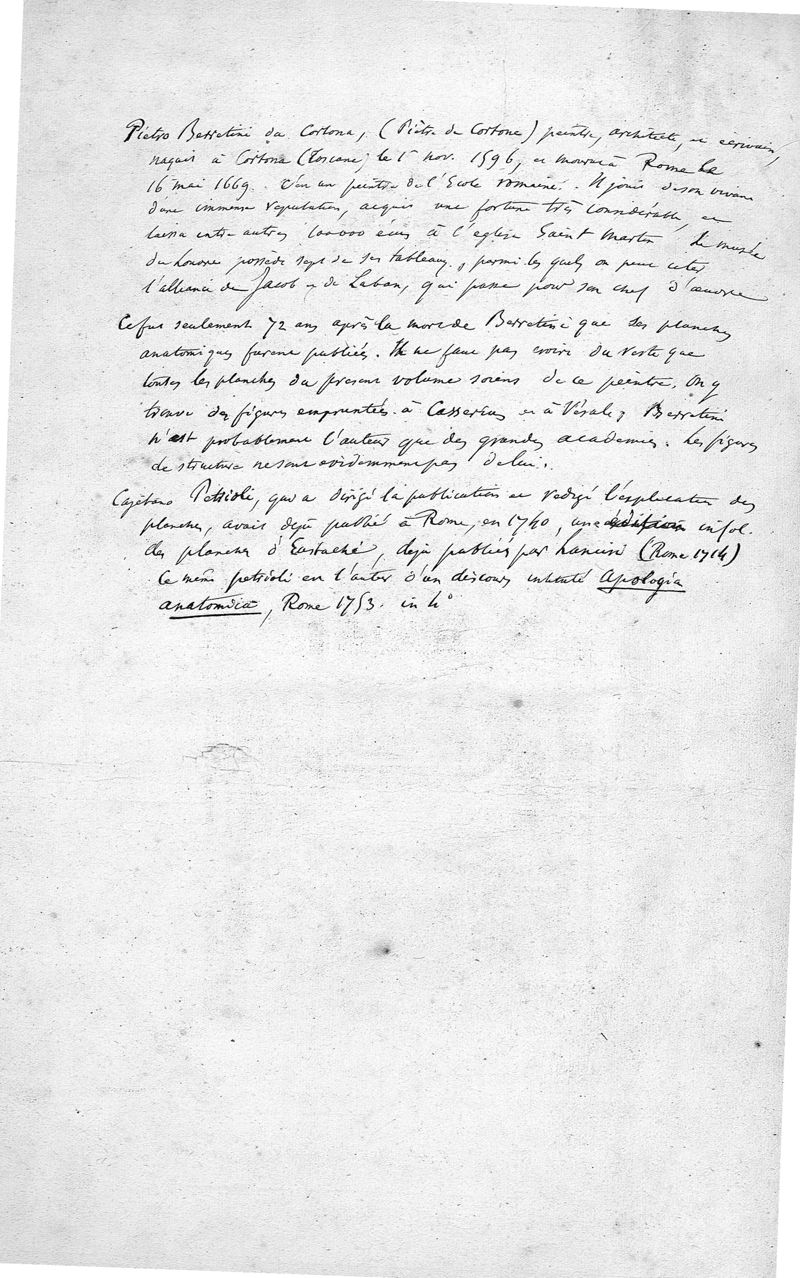 Pietro Berretini da Cortona, (Piètre de Cortone) peintre, architecte, et ecrivain,
naquit à Cortona (Toscane) le 1er nov. 1596, et mourut à Rome le
16 mai 1669. C'en un peintre de l'Ecole romaine. Il jouit de son vivant
d'une immense reputation, acquit une fortune très considérable, et
laissa entre autres 100000 écus à l'eglise Saint Martin. Le musée
du Louvre possède sept de ses tableaux, parmi les quels on peut citer
l'alliance de Jacob et de Laban, qui passe pour son chef d'œuvre
Ce fut seulement 72 ans après la mort de Berretini que ses planches
anatomiques furent publiées. Il ne faut pas croire du reste que
toutes les planches du present volume soient de ce peintre. On y
trouve des figures empruntées à Casserius et à Vésale; Berretini
n'est probablement l'auteur que des grandes academies. Les figures
de structure ne sont evidemment pas de lui.
Cajetano Petrioli, qui a dirigé la publication et redigé l'explication des
planches, avait dejà publié à Rome, en 1740, une édition in fol.
des planches d'Eustache, dejà publiées par Lancisi (Rome 1714)
Ce même petrioli est l'auteur d'un discours intitulé Apologia
anatomica, Rome 1753. in 4°